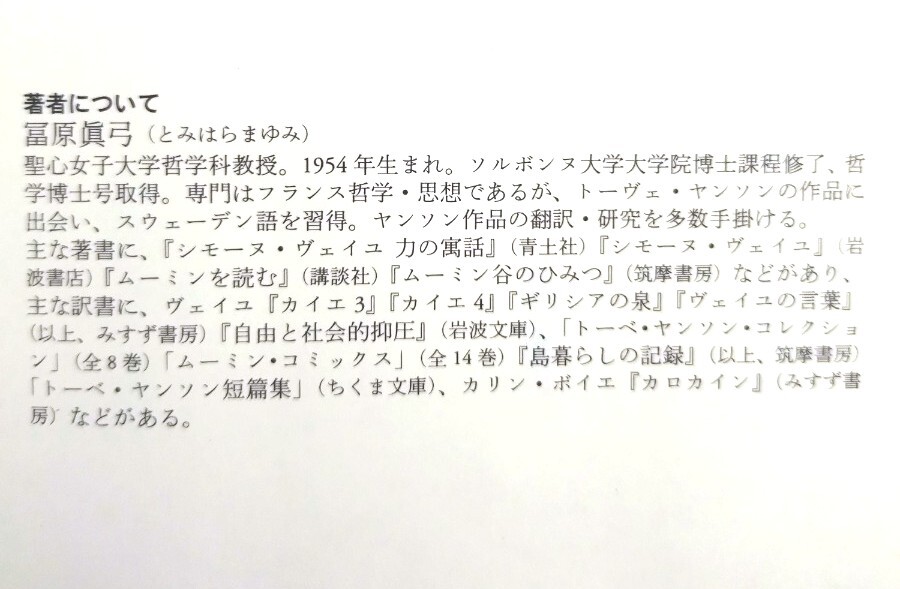 著者について
冨原眞弓（とみはらまゆみ）
聖心女子大学哲学科教授。1954年生まれ。ソルボンヌ大学大学院博士課程修了、哲
学博士号取得。専門はフランス哲学・思想であるが、トーヴェ・ヤンソンの作品に
出会い、スウェーデン語を習得。ヤンソン作品の翻訳・研究を多数手掛ける。
主な著書に、『シモーヌ・ヴェイユ 力の寓話』（青土社）『シモーヌ・ヴェイユ』（岩
波書店）『ムーミンを読む』（講談社）『ムーミン谷のひみつ』（筑摩書房）などがあり、
主な訳書に、ヴェイユ『カイエ3』『カイエ4』『ギリシアの泉』『ヴェイユの言葉』
（以上、みすず書房）『自由と社会的抑圧』（岩波文庫）、「トーベ・ヤンソン・コレクショ
ン」（全8巻）「ムーミン・コミックス」（全14巻）『島暮らしの記録』（以上、筑摩書房）
「トーベ・ヤンソン短篇集」（ちくま文庫）、カリン・ボイエ『カロカイン』（みすず書
房）などがある。